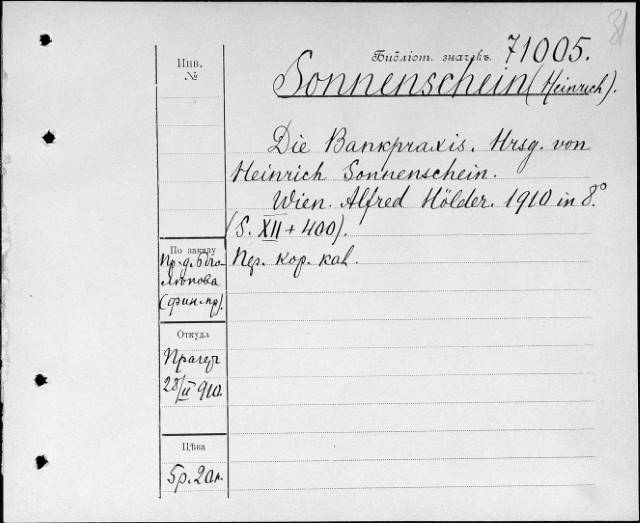 31
Библіот. значекъ. 71005.
Инв.
№
Sonnenschein (Heinrich).
Die Bankpraxis. Hrsg. von
Heinrich Sonnenschein.
Wien. Alfred Hölder. 1910 in 8.°
(S. XII + 400).
По заказу
Пр.-д. Бого-
лѣпова
(фин.-пр).
Пер. кор. кал.
Откуда
Прагеръ
28/II 910.
Цѣна
5р. 20к.